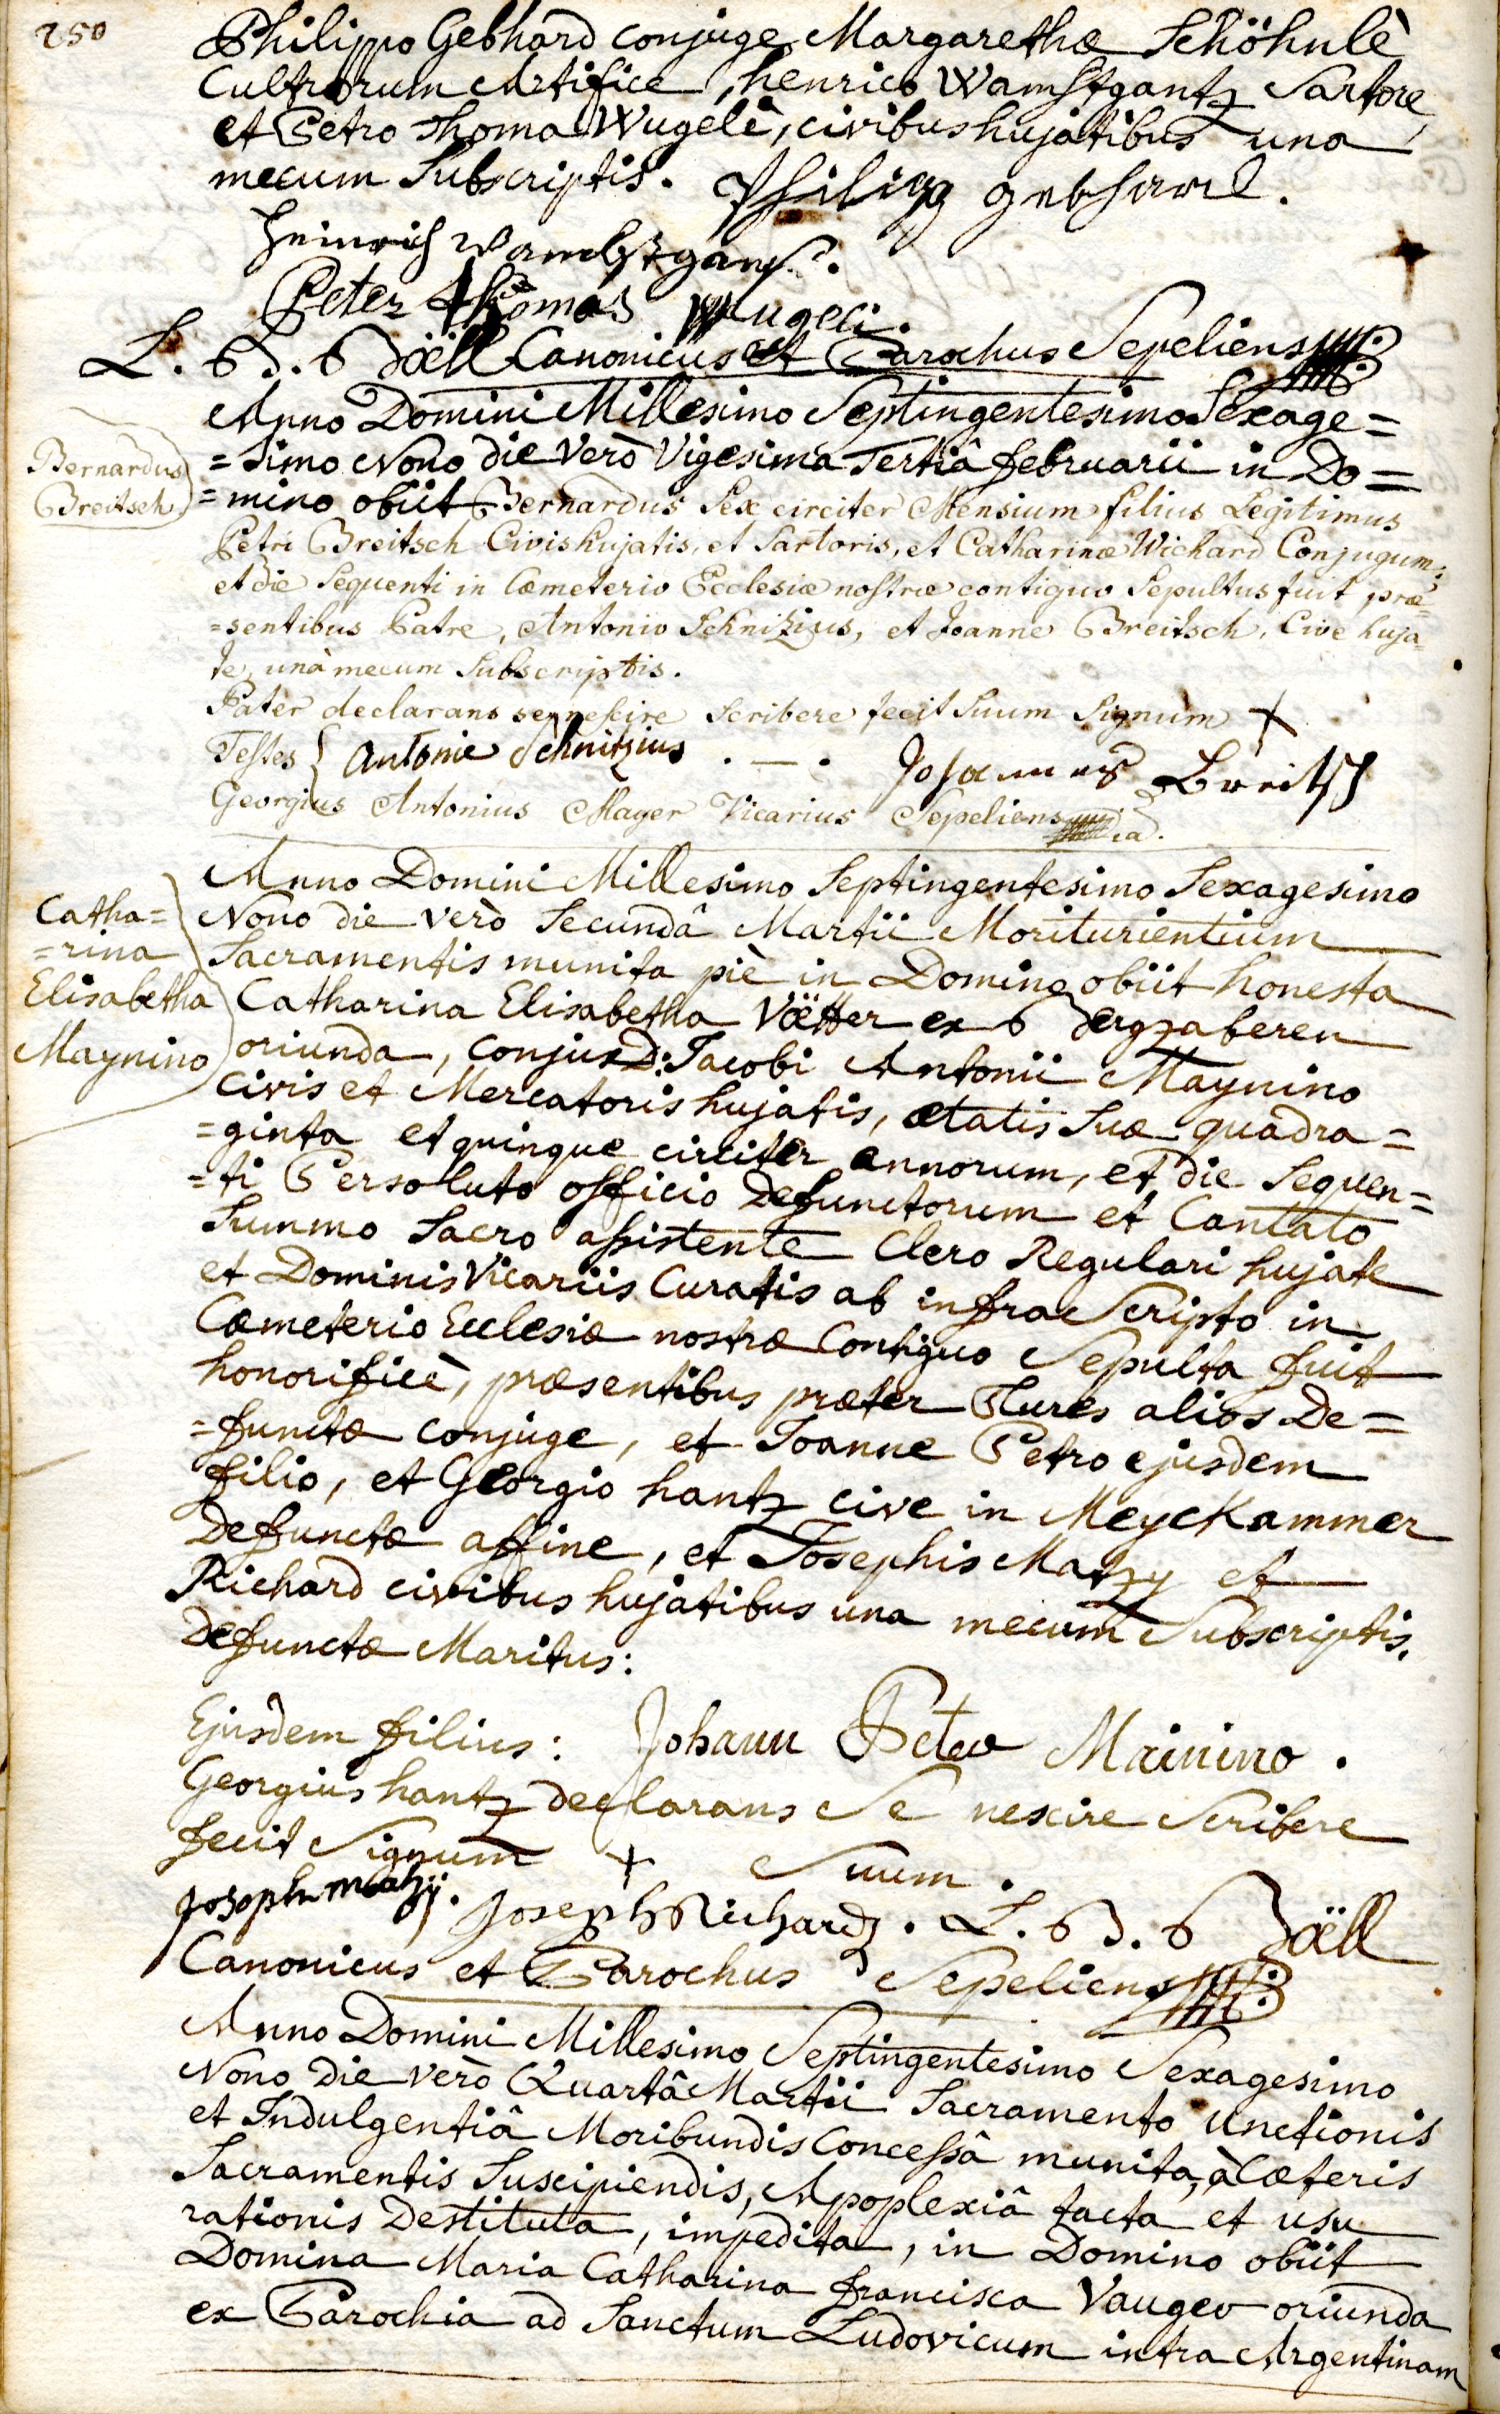 250
Philippo Gebhard conjuge Margarethæ Schöhnlè
Cultrorum Artifice, henrico Wamstgantz Sartore,
et Petro Thoma Wugelè, civibus hujatibus una
mecum Subscriptis. Philipp gebhard.
Heinrich Wambstgans.
Peter Thomas Wugeli.
L. B. Däll Canonicus et Parochus Sepeliens
Anno Domini Millesimo Septingentesimo Sexage=
=simo Nono die verò vigesima Tertiâ februarii in Do=
Bernardus
Breitsch
=mino obiit Bernardus Sex circiter Mensium filius Legitimus
Petri Breitsch Civis hujatis, et Sartoris, et Catharinæ Wichard Conjugum;
et die Sequenti in Cœmeterio Ecclesiæ nostræ contiguo Sepultus fuit præ=
=sentibus Patre, Antonio Schnitzius, et Joanne Breitsch, Cive huja=
te, unà mecum Subscriptis.
Pater declarans se nescire Scribere fecit Suum Signum X
Testes { Antonie Schnitzius . — . Johannes Breitsch
Georgius Antonius Mager Vicarius Sepeliens
Anno Domini Millesimo Septingentesimo Sexagesimo
Catha=
=rina
Elisabetha
Maynino
Nono die verò Secundâ Martii Moriturientium
Sacramentis munita piè in Domino obiit honesta
Catharina Elisabetha Vötter ex Bergzaberen
oriunda, conjux D: Jacobi Antonii Maynino
civis et Mercatoris hujatis, ætatis Suæ quadra=
=ginta et quinque circiter annorum, et die Sequen=
=ti Persoluto officio Defunctorum et Cantato
Summo Sacro assistente Clero Regulari hujate
et Dominis Vicariis Curatis ab infra Scripto in
Cœmeterio Ecclesiæ nostræ Contiguo Sepulta fuit
honorificè, præsentibus præter Plures alios De=
=functæ conjuge, et Joanne Petro ejusdem
filio, et Georgio hantz cive in Meyckammer
Defunctæ affine, et Josephis Matzy et
Richard civibus hujatibus una mecum Subscriptis.
Defunctæ Maritus:
Ejusdem filius: Johann Peter Mainino.
Georgius hantz declarans Se nescire Scribere
fecit Signum + Suum.
Joseph matzÿ. Joseph Richard. L. B. Däll
Canonicus et Parochus Sepeliens
Anno Domini Millesimo Septingentesimo Sexagesimo
Nono Die verò Quartâ Martii Sacramento Unctionis
et Indulgentiâ Moribundis Concessâ munita, à Cæteris
Sacramentis Suscipiendis, Apoplexiâ tacta et usu
rationis Destituta, impedita, in Domino obiit
Domina Maria Catharina francisca Vaugeo oriunda
ex Parochia ad Sanctum Ludovicum intra Argentinam